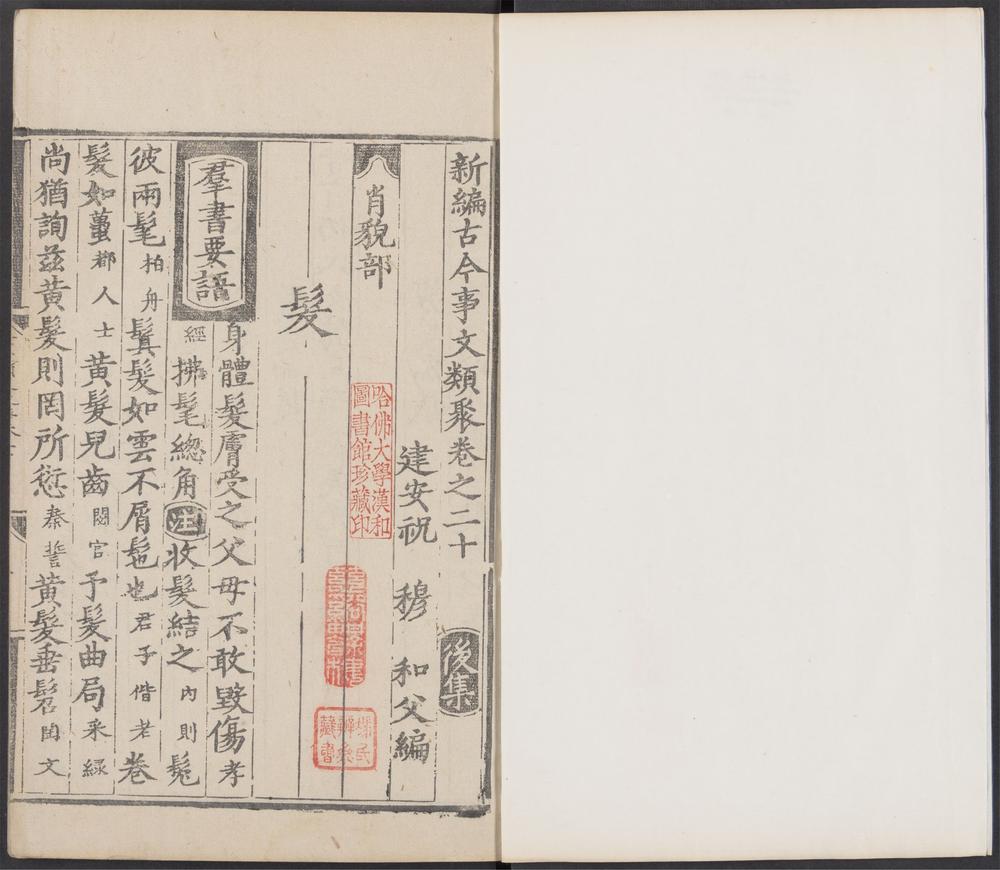 新編古今事文類聚卷之二十 後集
建安祝 穆 和父編
肖貌部
哈佛大學漢和
圖書館珍藏印
髮
羣書要語
身體髮膚受之父母不敢毀傷孝
經 拂髦總角 注 收髮結之內則 髧
彼兩髦柏舟 鬒髮如雲不屑髢也君子偕老 卷
髮如蠆都人士 黃髮兒齒閟官 予髮曲局采綠
尚猶詢茲黃髮則罔所愆秦誓 黃髮垂髫陶文